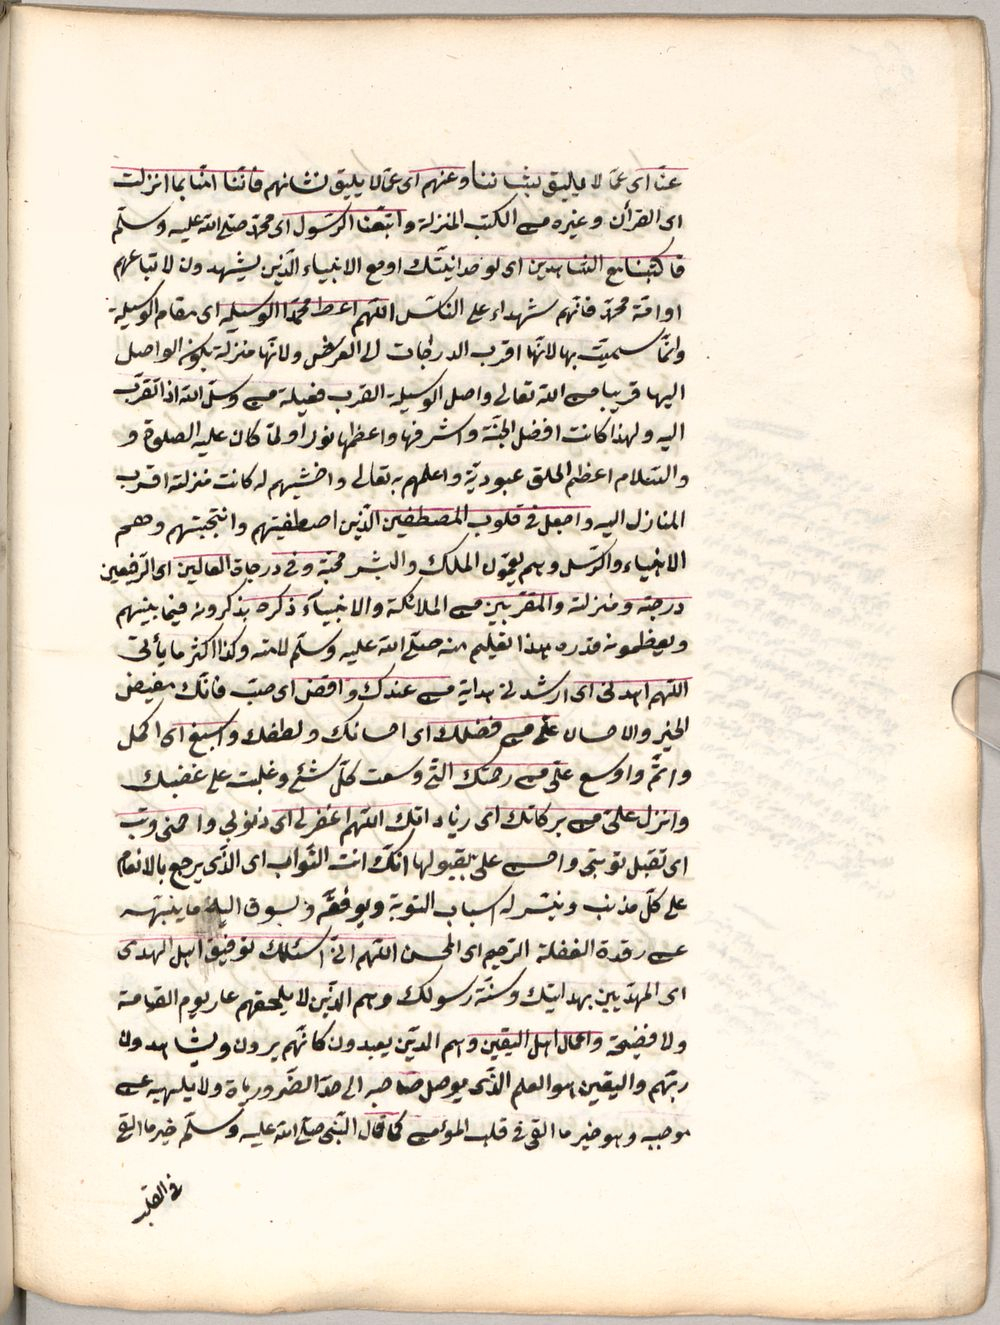 عنا اى عما لا يليق بشاننا وعنهم اى عما لا يليق بشانهم فاننا امنا بما انزلت
اى القرأن وغيره من الكتب المنزلة واتبعنا الرسول اى محمد صلى الله عليه وسلم
فاكتبنا مع الشاهدين اى لوحدانيتك او مع الانبياء الذين يشهدون لاتباعهم
او امة محمد فانهم شهداء على الناس اللهم اعط محمدا الوسيله اى مقام الوسيلة
وانما سميت بها لانها اقرب الدرجات الى العرش ولانها منزلة يكون الواصل
اليها قريبا من الله تعالى واصل الوسيلة القرب فعيلة من وسل الله اذا تقرب
اليه ولهذا كانت افضل الجنة واشرفها واعظمها نورا ولما كان عليه الصلوة و
والسلام اعظم الخلق عبودية واعلمهم به تعالى واخشيهم له كانت منزلته اقرب
المنازل اليه واجعل فى قلوب المصطفين الذين اصطفيتهم وانتجبتهم وهم
الانبياء والرسل وهم يعمون الملك والبشر محبة وفى درجات العالين اى الرفيعين
درجته ومنزلته والمقربين من الملائكة والانبياء ذكره يذكرونه فيما بينهم
ويعظمونه قدره هذا تعليم منه صلى الله عليه وسلم لامته وكذا اكثر ما يأتى
اللهم اهدنى اى ارشدنى هداية من عندك وافض اى صب فانك مفيض
الخير والاحسان على من فضلك اى احسانك ولطفك واسبغ اى اكمل
واتم واوسع على من رحمتك التى وسعت كل شئ وغلبت على غضبك
وانزل على من بركاتك اى زياداتك اللهم اغفر لى اى ذنوبى وارحمنى وتب
اى تقبل توبتى وامنن على بقبولها انك انت التواب اى الذى يرجع بالانعام
على كل مذنب وييسر له اسباب التوبة ويوفقه ويسوق اليه ما ينبهه
عن رقدة الغفلة الرحيم اى المحسن اللهم انى اسئلك توفيق اهل الهدى
اى المهديين بهدايتك وسنة رسولك وهم الذين لا يلحقهم عار يوم القيامة
ولا فضيحة واعمال اهل اليقين وهم الذين يعبدون كانهم يرون ويشاهدون
ربهم واليقين هو العلم الذى يوصل صاحبه الى حد الضرورياة ولا يلهيه عن
موجبه وهو خير ما القى فى قلب المؤمن كما قال النبى صلى الله عليه وسلم خير ما القى
فى القلب